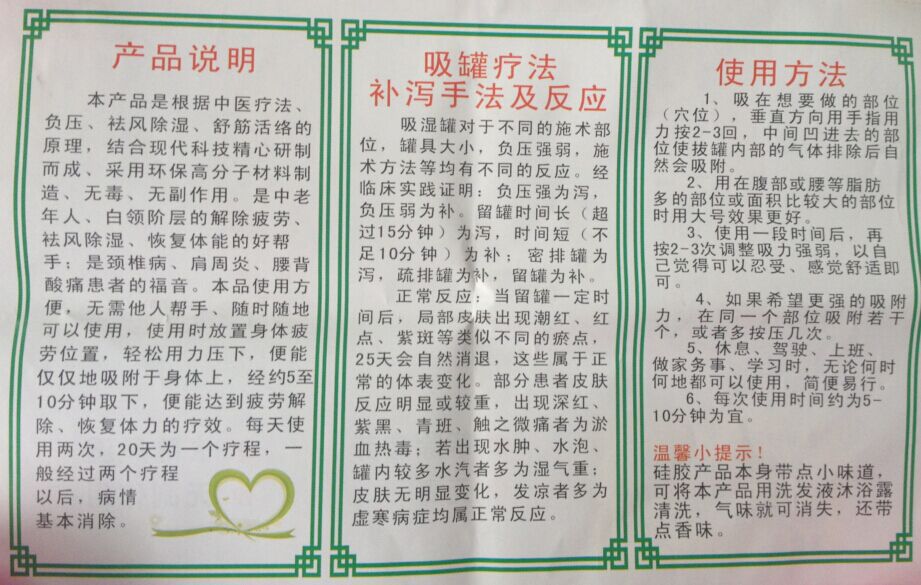 产品说明
本产品是根据中医疗法、
负压、祛风除湿、舒筋活络的
原理，结合现代科技精心研制
而成、采用环保高分子材料制
造、无毒、无副作用。是中老
年人、白领阶层的解除疲劳、
祛风除湿、恢复体能的好帮
手；是颈椎病、肩周炎、腰背
酸痛患者的福音。本品使用方
便，无需他人帮手、随时随地
可以使用，使用时放置身体疲
劳位置，轻松用力压下，便能
仅仅地吸附于身体上，经约5至
10分钟取下，便能达到疲劳解
除、恢复体力的疗效。每天使
用两次，20天为一个疗程，一
般经过两个疗程
以后，病情
基本消除。
吸罐疗法
补泻手法及反应
吸湿罐对于不同的施术部
位，罐具大小，负压强弱，施
术方法等均有不同的反应。经
临床实践证明：负压强为泻，
负压弱为补。留罐时间长（超
过15分钟）为泻，时间短（不
足10分钟）为补；密排罐为
泻，疏排罐为补，留罐为补。
正常反应：当留罐一定时
间后，局部皮肤出现潮红、红
点、紫斑等类似不同的瘀点，
25天会自然消退，这些属于正
常的体表变化。部分患者皮肤
反应明显或较重，出现深红、
紫黑、青班、触之微痛者为淤
血热毒；若出现水肿、水泡、
罐内较多水汽者多为湿气重；
皮肤无明显变化，发凉者多为
虚寒病症均属正常反应。
使用方法
1、吸在想要做的部位
（穴位），垂直方向用手指用
力按2-3回，中间凹进去的部
位使拔罐内部的气体排除后自
然会吸附。
2、用在腹部或腰等脂肪
多的部位或面积比较大的部位
时用大号效果更好。
3、使用一段时间后，再
按2-3次调整吸力强弱，以自
己觉得可以忍受、感觉舒适即
可。
4、如果希望更强的吸附
力，在同一个部位吸附若干
个，或者多按压几次。
5、休息、驾驶、上班、
做家务事、学习时，无论何时
何地都可以使用，简便易行。
6、每次使用时间约为5-
10分钟为宜。
温馨小提示！
硅胶产品本身带点小味道，
可将本产品用洗发液沐浴露
清洗，气味就可消失，还带
点香味。